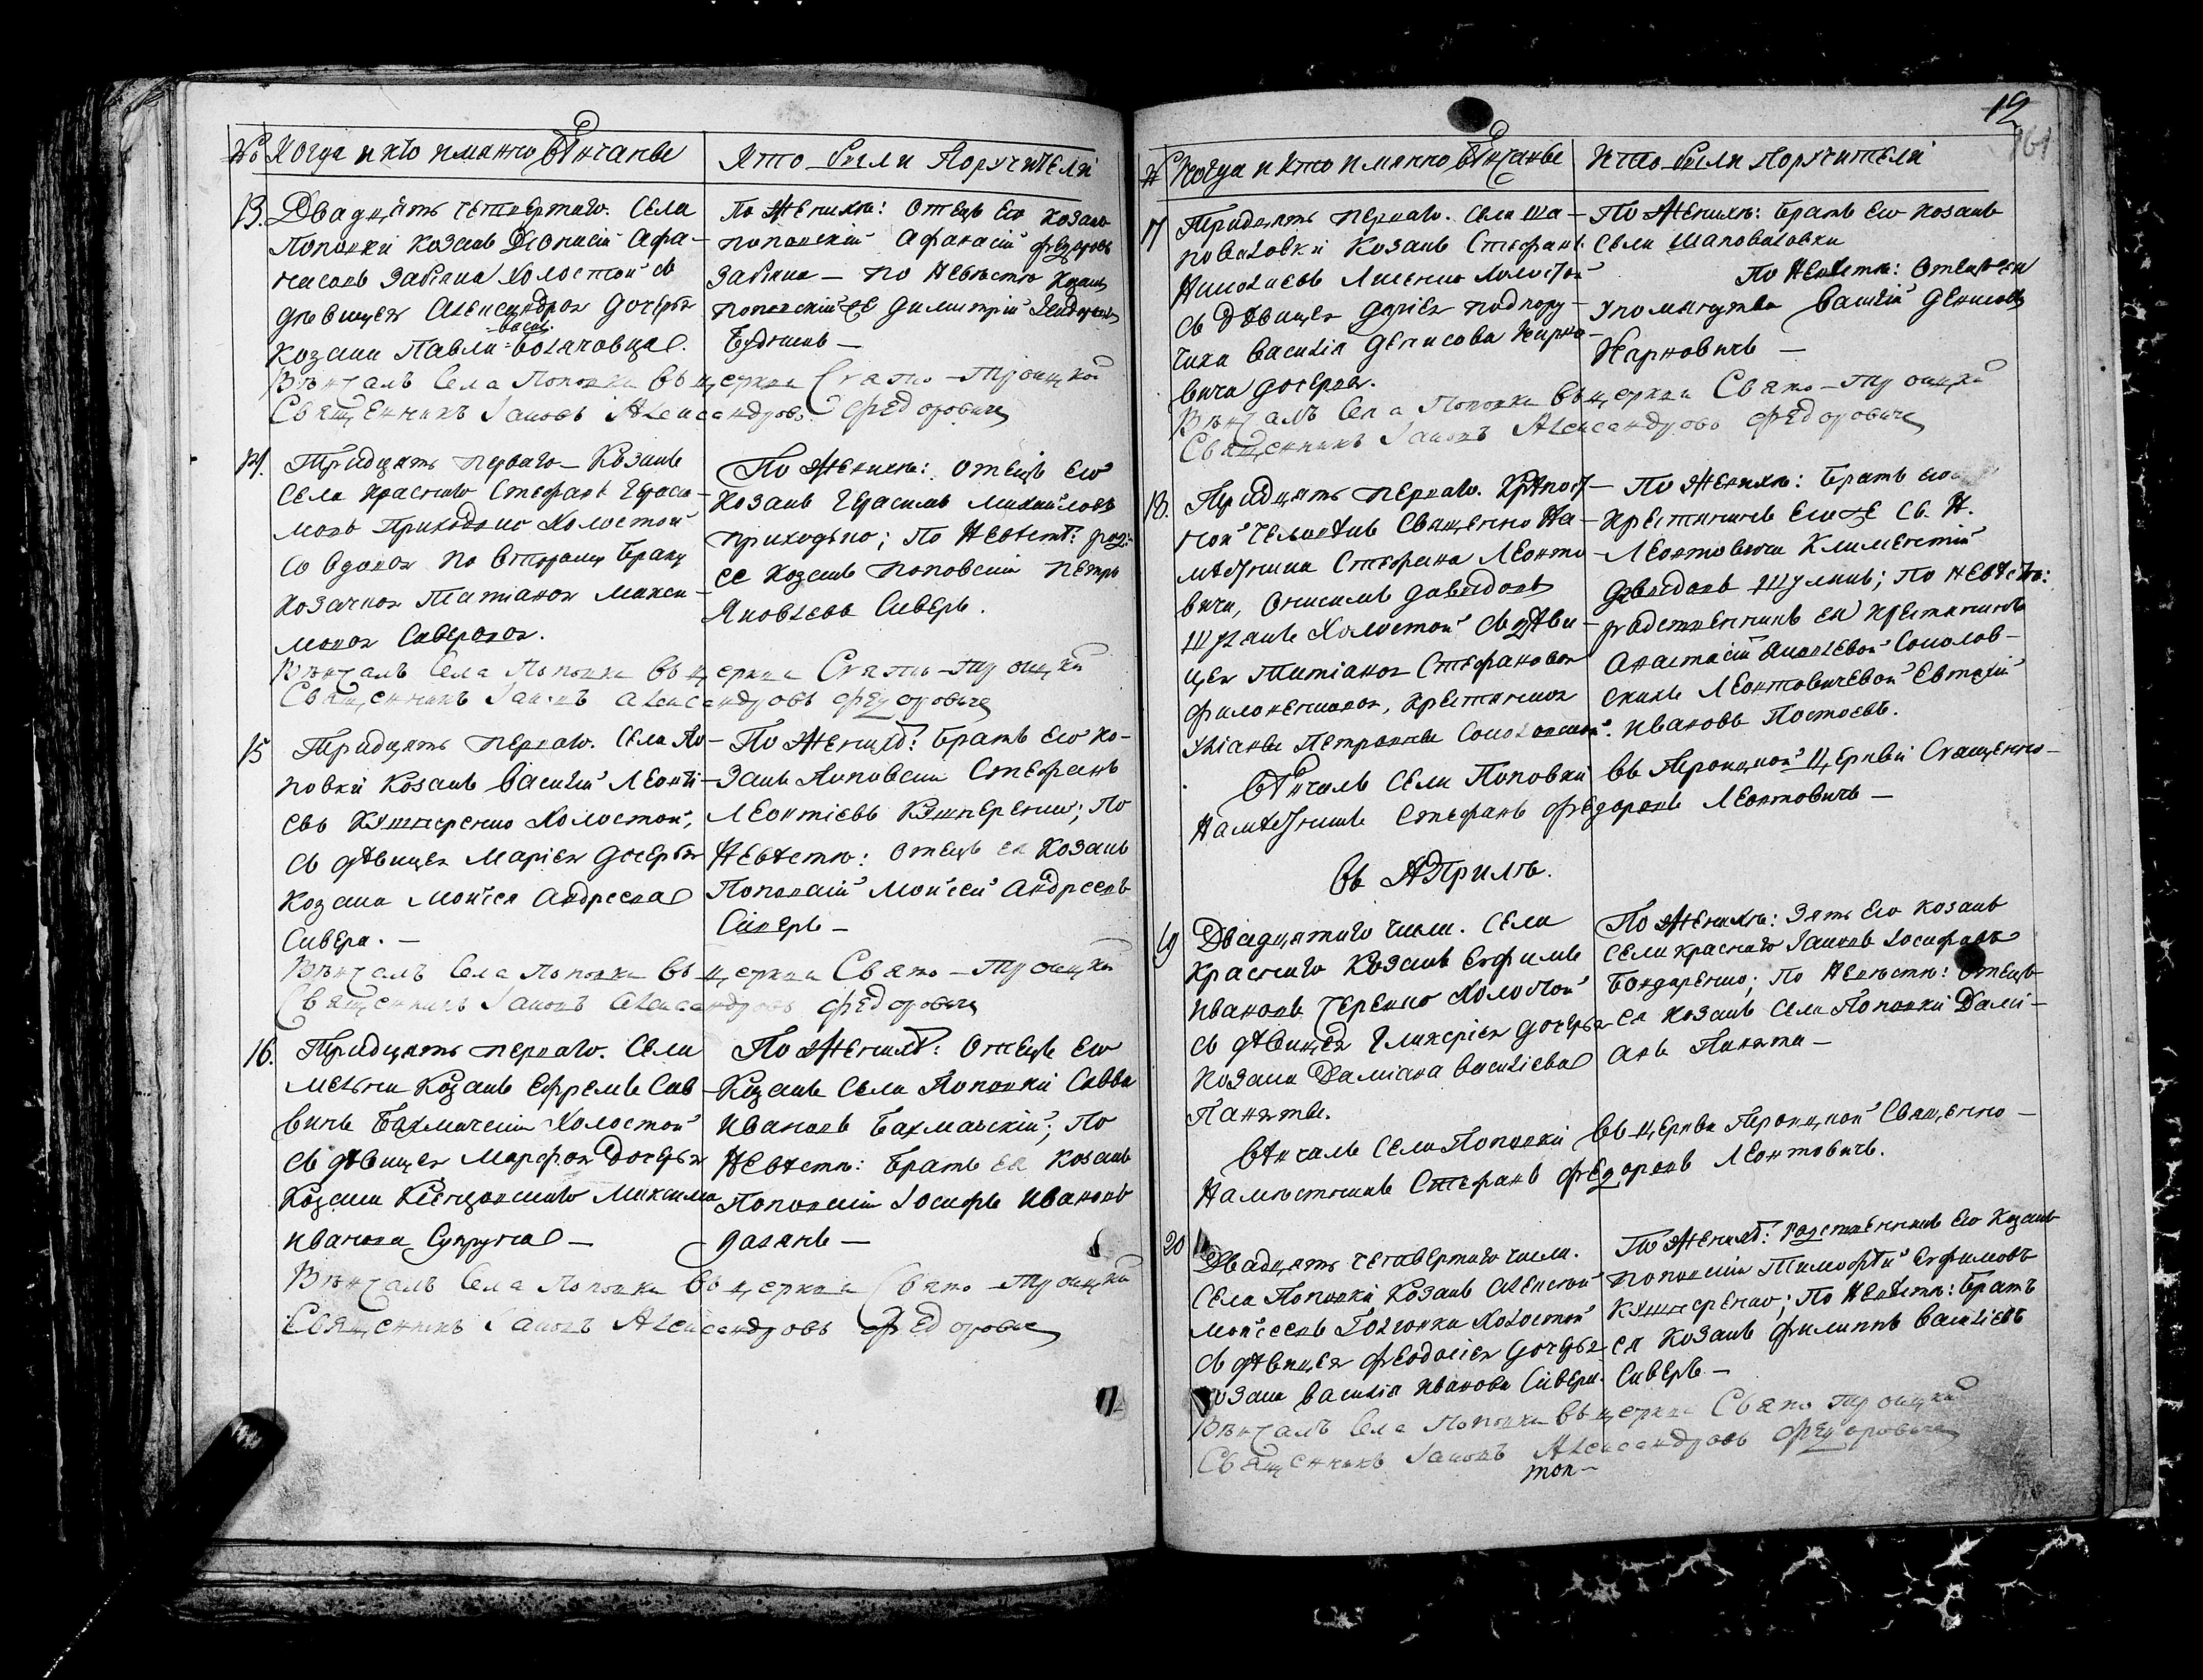 № Когда и кто имянно вѣнчаны
Кто были Поручители
13. Двадцать четвертаго. Села
Поповки Козакъ Діонисій Афа-
насовъ Забіяка холостой съ
дѣвицею Александрою дочерью
Козака Павла
По женихѣ: Отецъ его козакъ
поповскій Афанасій Федоровъ
Забіяка — по невѣстѣ козакъ
поповскій же Димитрій
Вѣнчалъ Села Поповки въ церкви Свято-Троицкой
Священникъ Іаковъ Александровъ Федоровичъ
14. Тридцать перваго — Козакъ
села Краснаго Стефанъ Гераси-
мовъ Приходько холостой
со вдовою по второму браку
козачкою Татіаною Макси-
мовою Сиверовою.
По женихѣ: Отецъ его
козакъ Герасимъ Михайловъ
Приходько; По невѣстѣ:
ее козакъ поповскій Петръ
Яковлевъ Сиверъ.
Вѣнчалъ Села Поповки въ церкви Свято-Троицкой
Священникъ Іаковъ Александровъ Федоровичъ
15 Тридцать перваго. Села По-
повки Козакъ Василій Леонті-
евъ Кушнеренко холостой,
съ дѣвицею Маріею дочерью
Козака Моисея Андреева
Сивера. —
По женихѣ: братъ его ко-
закъ Поповскій Стефанъ
Леонтіевъ Кушнеренко; По
невѣстѣ: отецъ ея Козакъ
Поповскій Моисей Андреевъ
Сиверъ —
Вѣнчалъ Села Поповки въ церкви Свято-Троицкой
Священникъ Іаковъ Александровъ Федоровичъ
16. Тридцать перваго. Села
Козакъ Ефремъ Сав-
вичъ Бахмачскій холостой
съ дѣвицею Марфою дочерью
Козака Максима
Иванова Супруна —
По женихѣ: Отецъ его
Козакъ Села Поповки Савва
Ивановъ Бахмачскій; По
невѣстѣ: братъ ея козакъ
Поповскій Іосифъ Ивановъ
Вѣнчалъ Села Поповки въ церкви Свято-Троицкой
Священникъ Іаковъ Александровъ Федоровичъ
19
161
№ Когда и кто имянно вѣнчаны
Кто были поручители
17 Тридцать перваго. Села Ша-
поваловки Козакъ Стефанъ
Николаевъ Лисенко холостой
съ дѣвицею Даріею подпору-
чика Василія Денисова Карно-
вича дочерью.
По женихѣ: братъ его козакъ
Села Шаповаловки
По невѣстѣ: Отецъ ея
упомянутый Василій Денисовъ
Карновичъ —
Вѣнчалъ Села Поповки въ церкви Свято-Троицкой
Священникъ Іаковъ Александровъ Федоровичъ
18. Тридцать перваго. Крѣпост-
ной человѣкъ Священно На-
мѣстника Стефана Леонто-
вича, Онисимъ Давидовъ
Шулякъ холостой съ дѣви-
цею Татіаною Стефановою
Филоненковою, крестьянкою
Уліаны Петровны Соколовской.
По женихѣ: братъ его
крестьянинъ его же Св. Н.
Леонтовича Климентій
Давидовъ Шулякъ; По невѣстѣ:
родственникъ ея крестьянинъ
Анастасіи Яковлевой Соколов-
скихъ Леонтовичевой Евтихій
Ивановъ Постоевъ.
Вѣнчалъ Села Поповки въ Троицкой Церкви Священно-
намѣстникъ Стефанъ Федоровъ Леонтовичъ —
Въ Априлѣ.
19 Двадцатаго числа. Села
Краснаго Козакъ Евфимъ
Ивановъ Черенко холостой
съ дѣвицею Гликеріею дочерью
козака Даміана Василіева
Панята.
По женихѣ: Зять его козакъ
села Краснаго Іаковъ Іосифовъ
Бондаренко; По невѣстѣ: Отецъ
ея козакъ Села Поповки Дамі-
анъ Панята —
Вѣнчалъ Села Поповки въ церкви Троицкой Священно-
намѣстникъ Стефанъ Федоровъ Леонтовичъ.
20 Двадцать четвертаго числа.
Села Поповки Козакъ Алексѣй
Моисеевъ холостой
съ дѣвицею Феодосіею дочерью
козака Василія Иванова Сивера.
По женихѣ: родственникъ его козакъ
поповскій Тимофѣй Евфимовъ
Кушнеренко; По невѣстѣ: братъ
ея козакъ Филиппъ Василіевъ
Сиверъ —
Вѣнчалъ Села Поповки въ церкви Свято Троицкой
Священникъ Іаковъ Александровъ Федоровичъ